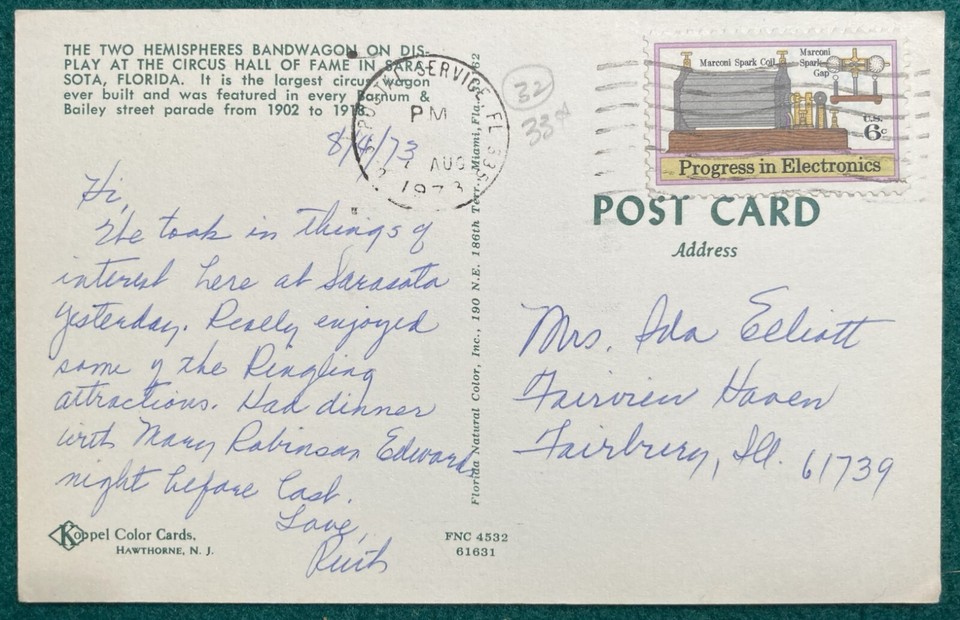 THE TWO HEMISPHERES BANDWAGON ON DIS-
PLAY AT THE CIRCUS HALL OF FAME IN SARA-
SOTA, FLORIDA. It is the largest circus wagon
ever built and was featured in every Barnum &
Bailey street parade from 1902 to 1918.
8/4/73
Hi,
We took in things of
interest here at Sarasota
yesterday. Really enjoyed
some of the Ringling
attractions. Had dinner
with Mary Robinson Edward
night before last.
Love,
Ruth
Koppel Color Cards,
HAWTHORNE, N. J.
FNC 4532
61631
Florida Natural Color, Inc., 190 N.E. 186th Terr., Miami, Fla.
SERVICE, FL 335
PM
AUG
1973
32
33
Marconi Spark Coil
Marconi
Spark
Gap
U.S.
6c
Progress in Electronics
POST CARD
Address
Mrs. Ida Elliott
Fairview Haven
Fairbury, Ill. 61739